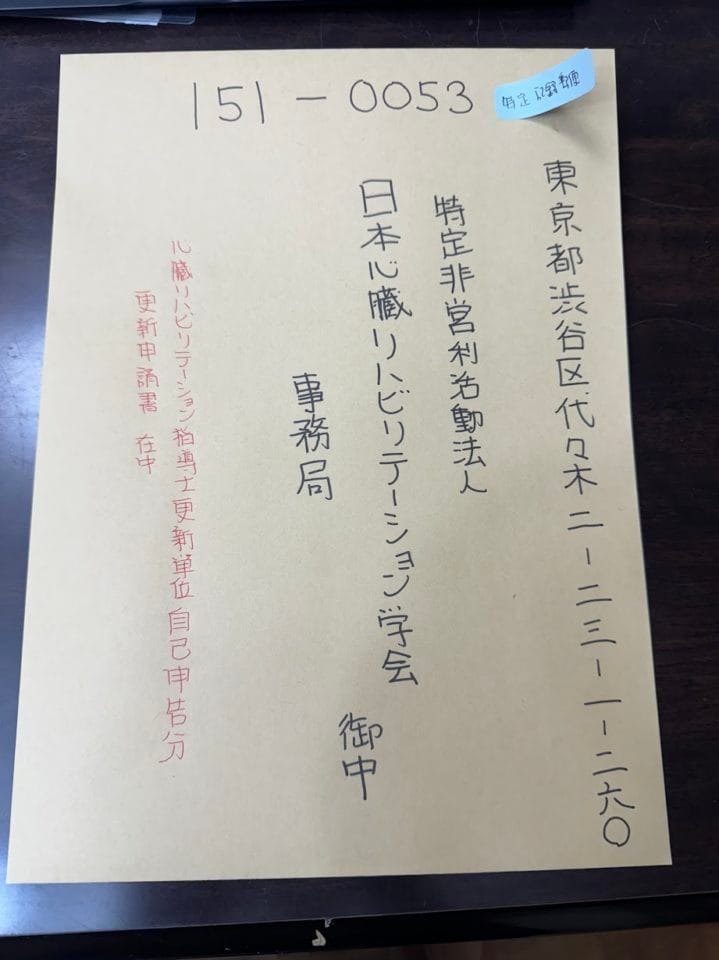 151-0053
特定記録郵便
東京都渋谷区代々木二-二三-一-二六〇
特定非営利活動法人
日本心臓リハビリテーション学会
事務局
御中
心臓リハビリテーション指導士更新単位自己申告分
更新申請書 在中